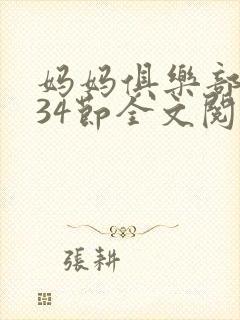 妈妈俱樂部
34節全文閱
張耕